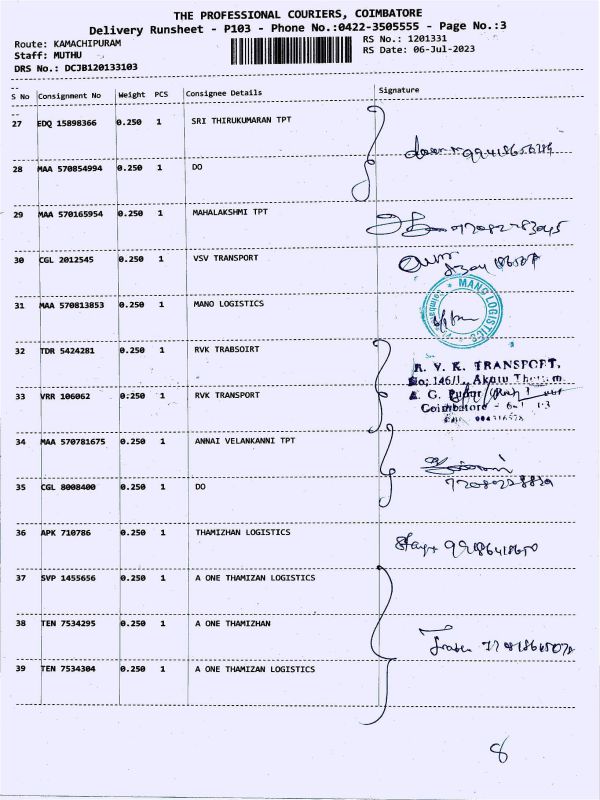 THE PROFESSIONAL COURIERS, COIMBATORE
Delivery Runsheet - P103 - Phone No.:0422-3505555 - Page No.:3
Route: KAMACHIPURAM RS No.: 1201331
Staff: MUTHU RS Date: 06-Jul-2023
DRS No.: DCJB120133103
S No Consignment No Weight PCS Consignee Details Signature
27 EDQ 15898366 0.250 1 SRI THIRUKUMARAN TPT
28 MAA 570854994 0.250 1 DO
29 MAA 570165954 0.250 1 MAHALAKSHMI TPT
30 CGL 2012545 0.250 1 VSV TRANSPORT
31 MAA 570813853 0.250 1 MANO LOGISTICS
MANO LOGISTICS
32 TDR 5424281 0.250 1 RVK TRABSOIRT
R. V. K. TRANSPORT,
No; 146/1, Akatu
33 VRR 106062 0.250 1 RVK TRANSPORT
A. G. Pudur
Coimbatore
34 MAA 570781675 0.250 1 ANNAI VELANKANNI TPT
35 CGL 8008400 0.250 1 DO
36 APK 710786 0.250 1 THAMIZHAN LOGISTICS
37 SVP 1455656 0.250 1 A ONE THAMIZAN LOGISTICS
38 TEN 7534295 0.250 1 A ONE THAMIZHAN
39 TEN 7534304 0.250 1 A ONE THAMIZAN LOGISTICS
8